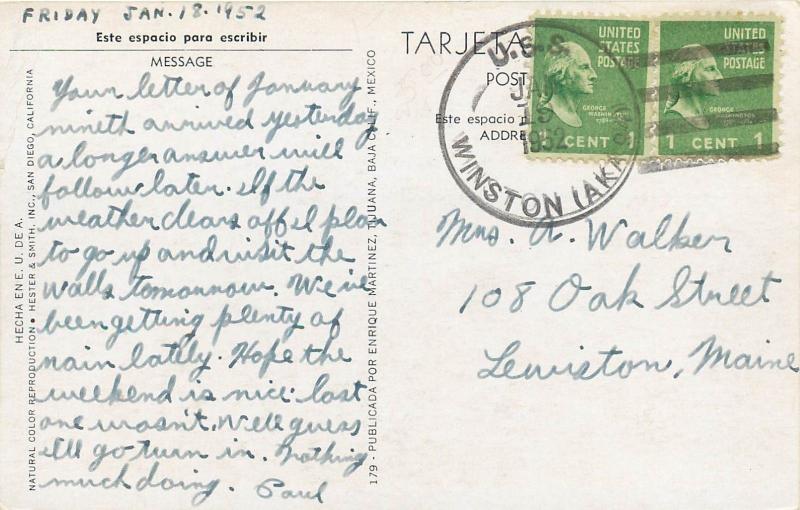 FRIDAY JAN. 18. 1952
Este espacio para escribir
MESSAGE
Your letter of January
nineth arrived yesterday
a longer answer will
follow later. If the
weather clears off I plan
to go up and visit the
Walls tomorrow. We've
been getting plenty of
rain lately. Hope the
weekend is nice: last
one wasn't. Well guess
I'll go turn in. Nothing
much doing. Paul
HECHA EN E. U. DE A.
NATURAL COLOR REPRODUCTION • HESTER & SMITH, INC., SAN DIEGO, CALIFORNIA
179 - PUBLICADA POR ENRIQUE MARTINEZ, TIJUANA, BAJA CALIF., MEXICO
TARJETA
POST
Este espacio
ADDRE
U.S.S.
JAN
19
1952
WINSTON (AKA
UNITED
STATES
POSTAGE
GEORGE
WASHIN
1 CENT 1
UNITED
STATES
POSTAGE
GEORGE
WASHINGTON
1 CENT 1
Mrs. A. Walker
108 Oak Street
Lewiston, Maine